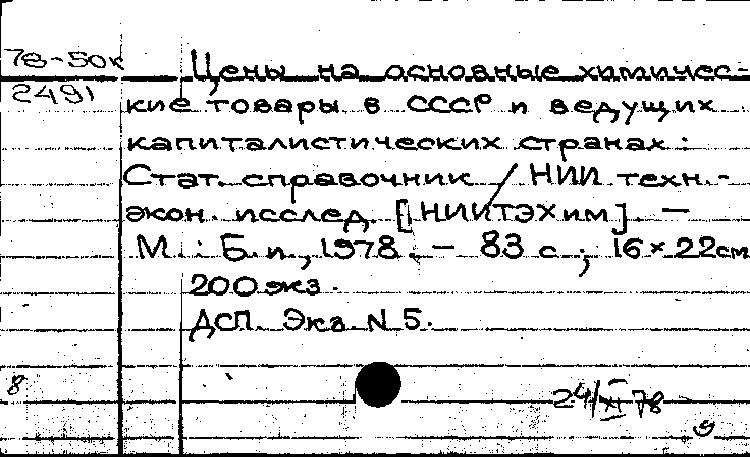 78-50к
2491
Цены на основные химичес-
кие товары в СССР и ведущих
капиталистических странах:
Стат. справочник / НИИ техн.-
экон. исслед. [НИИТЭХим]. —
М.: Б. и., 1978. — 83 с.; 16×22см
200 экз.
ДСП. Экз. N 5.
8
24/XI 78